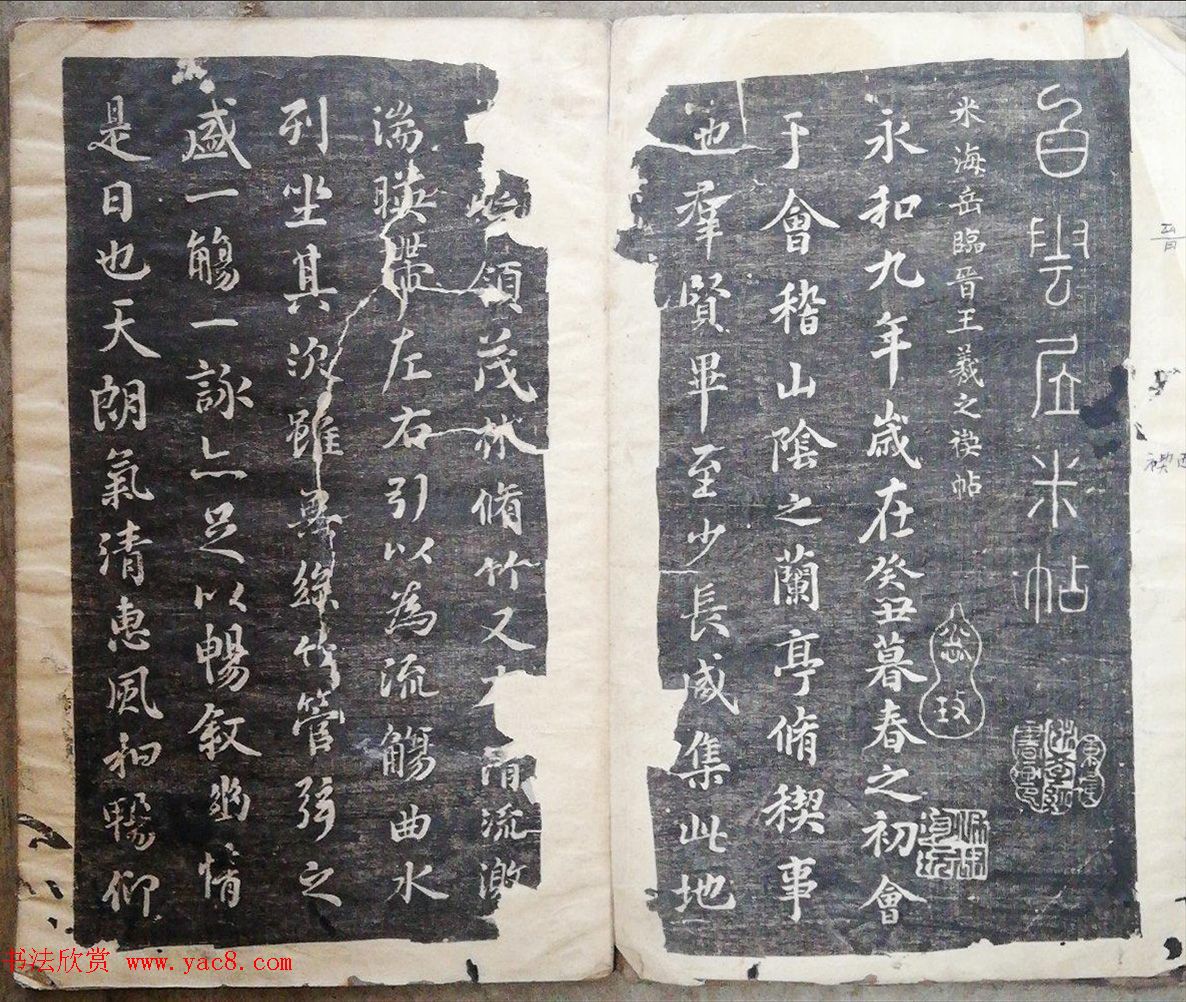 白雲居米帖
米海岳臨晉王羲之禊帖
永和九年歲在癸丑暮春之初會
于會稽山陰之蘭亭脩稧事
也羣賢畢至少長咸集此地
領茂林脩竹又有清流激
湍暎帶左右引以為流觴曲水
列坐其次雖無絲竹管弦之
盛一觴一詠亦足以暢敘幽情
是日也天朗氣清惠風和暢仰
书法欣赏 www.yac8.com